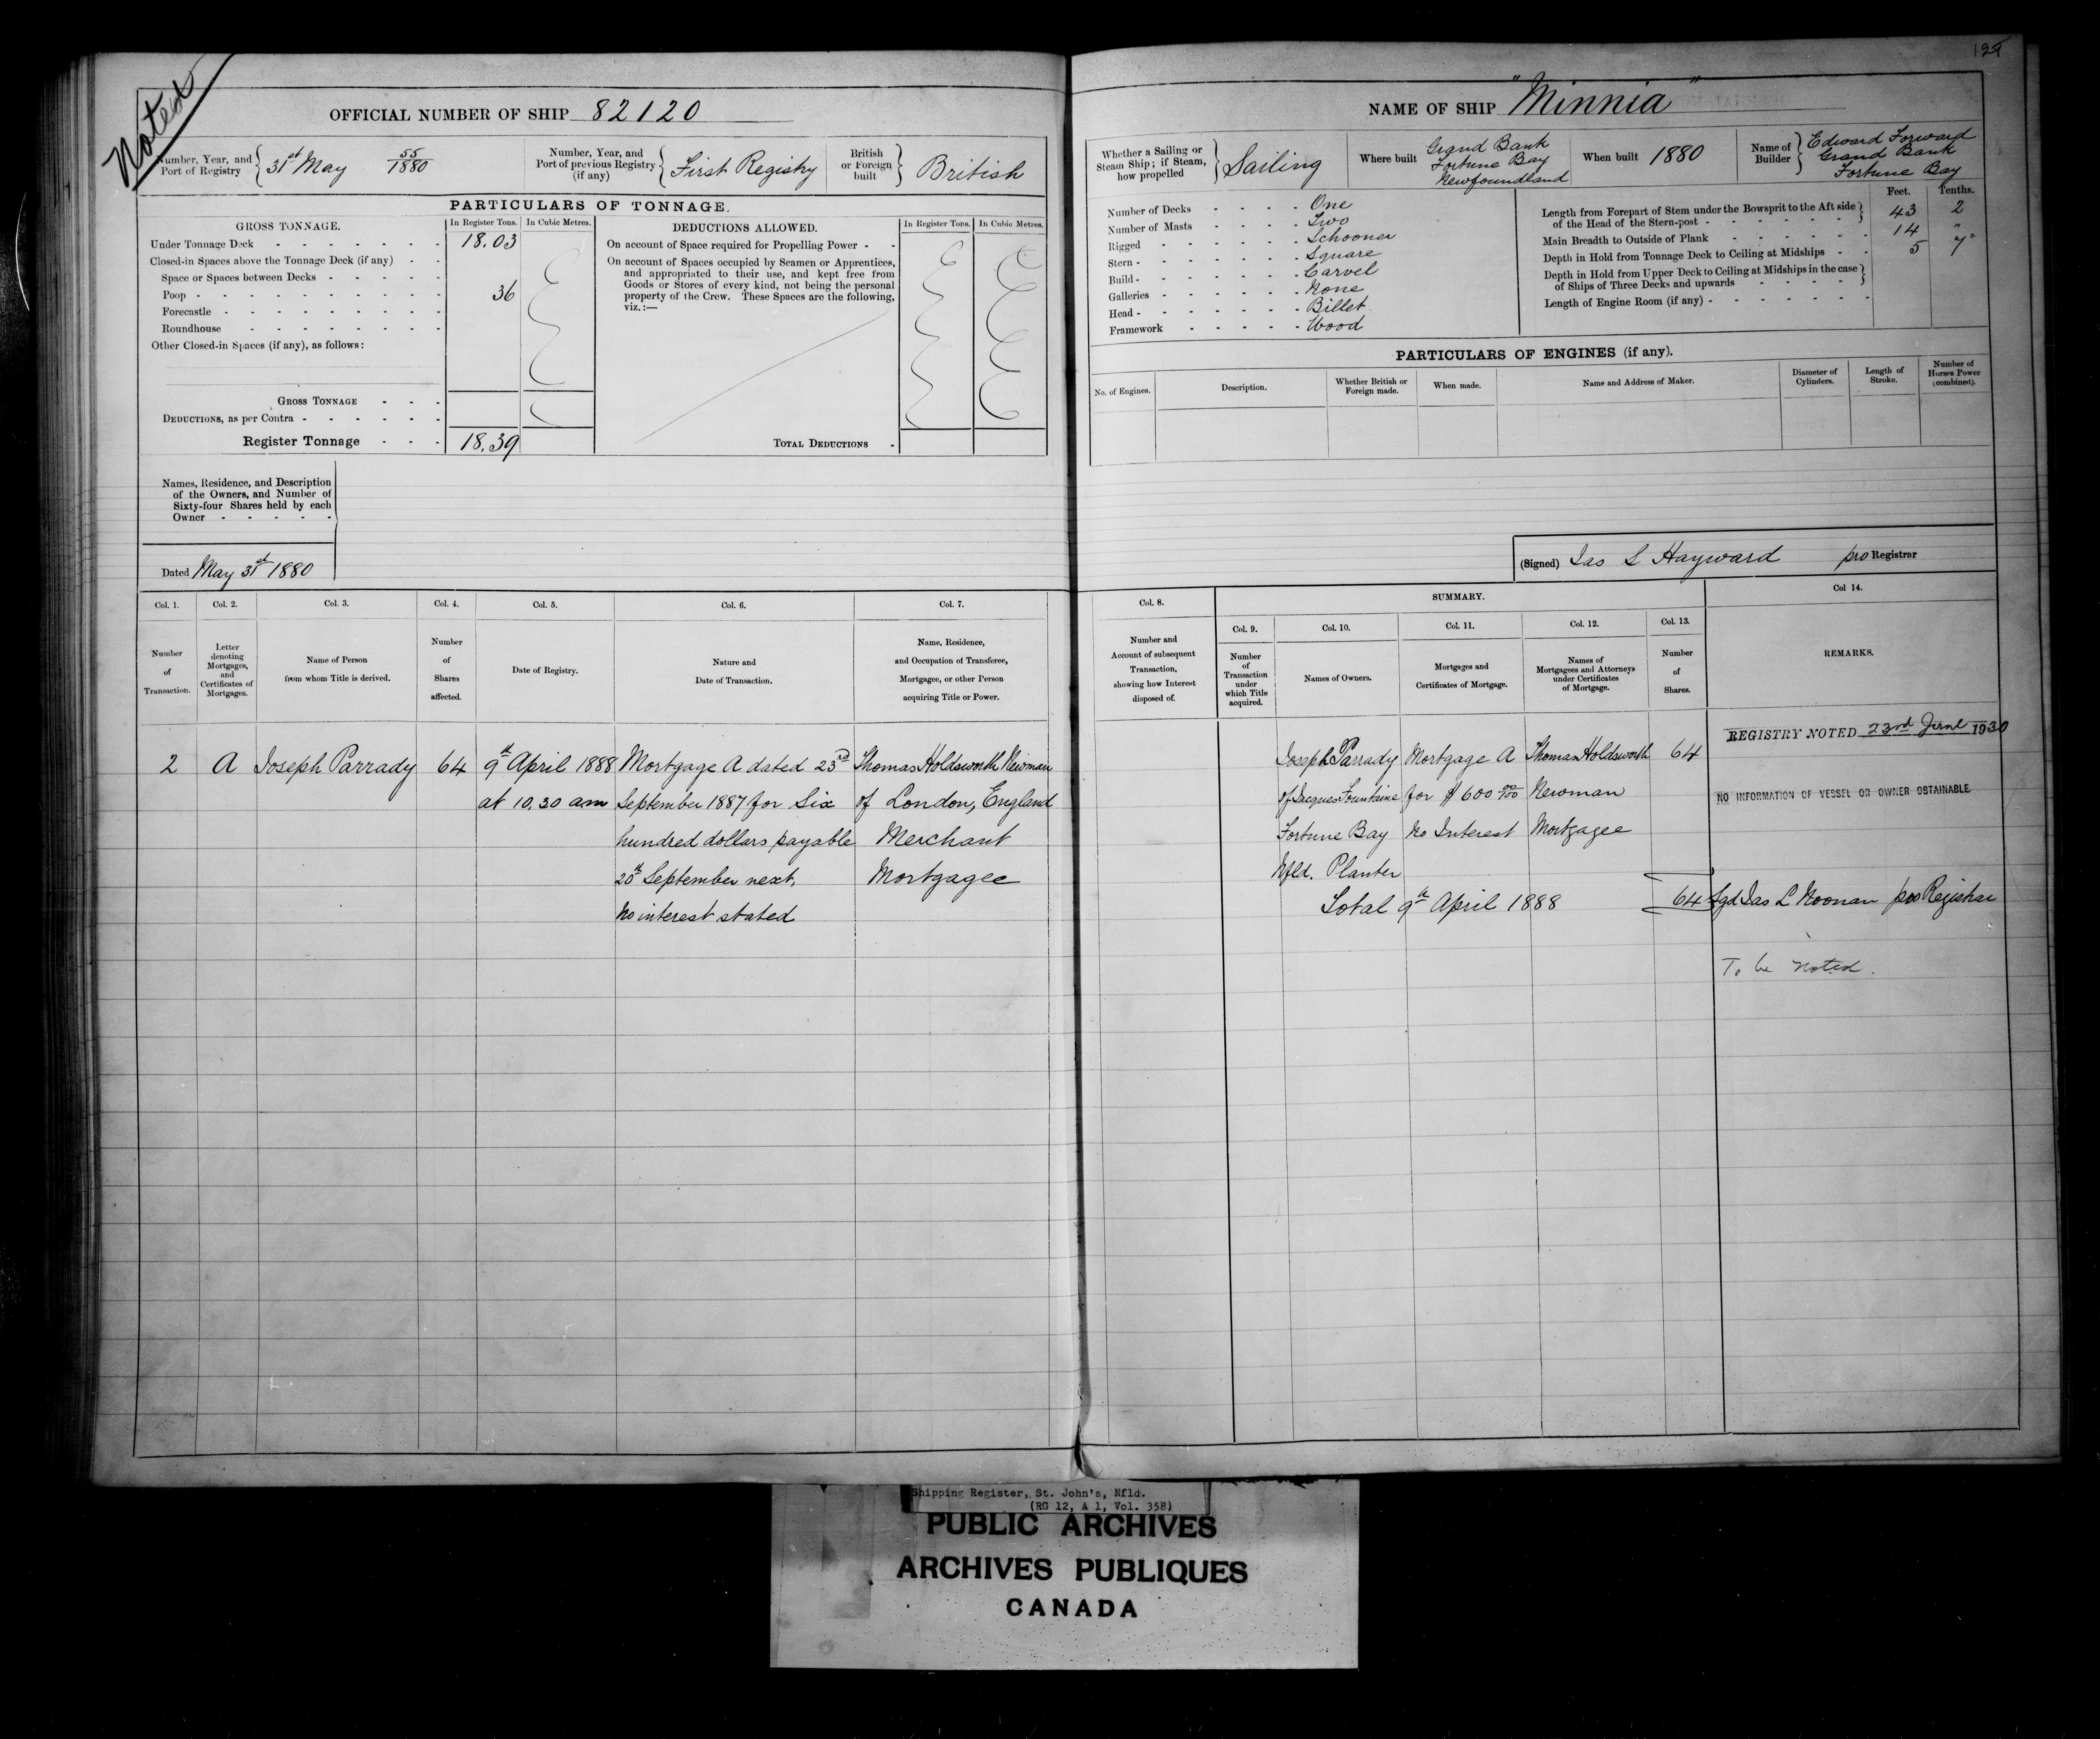 Noted
OFFICIAL NUMBER OF SHIP 82120
Number, Year, and Port of Registry { 31st May 55/1880
Number, Year, and Port of previous Registry (if any) { First Registry
British or Foreign built } British
PARTICULARS OF TONNAGE.
GROSS TONNAGE. In Register Tons. In Cubic Metres.
Under Tonnage Deck - - - - - - - 18.03
Closed-in Spaces above the Tonnage Deck (if any) - -
Space or Spaces between Decks - - - - -
Poop - - - - - - - - - 36
Forecastle - - - - - - - -
Roundhouse - - - - - - -
Other Closed-in Spaces (if any), as follows:
GROSS TONNAGE - - -
DEDUCTIONS, as per Contra - - - - - -
Register Tonnage - - - 18.39
DEDUCTIONS ALLOWED. In Register Tons. In Cubic Metres.
On account of Space required for Propelling Power - -
On account of Spaces occupied by Seamen or Apprentices,
and appropriated to their use, and kept free from
Goods or Stores of every kind, not being the personal
property of the Crew. These Spaces are the following,
viz.:—
TOTAL DEDUCTIONS -
Names, Residence, and Description
of the Owners, and Number of
Sixty-four Shares held by each
Owner - - - - -
Dated May 31st 1880
Col. 1. Col. 2. Col. 3. Col. 4. Col. 5. Col. 6. Col. 7.
Number of Transaction.
Letter denoting Mortgages, and Certificates of Mortgages.
Name of Person from whom Title is derived.
Number of Shares affected.
Date of Registry.
Nature and Date of Transaction.
Name, Residence, and Occupation of Transferee, Mortgagee, or other Person acquiring Title or Power.
2 A Joseph Parrady 64 9th April 1888 Mortgage A dated 23rd Thomas Holdsworth Newman
at 10.30 am September 1887 for Six of London, England
hundred dollars payable Merchant
20th September next, Mortgagee
No interest stated
125
NAME OF SHIP "Minnia"
Whether a Sailing or Steam Ship; if Steam, how propelled } Sailing
Where built Grand Bank
Fortune Bay
Newfoundland
When built 1880
Name of Builder } Edward Forward
Grand Bank
Fortune Bay
Number of Decks - - - - One
Number of Masts - - - - Two
Rigged - - - - - - Schooner
Stern - - - - - - - Square
Build - - - - - - - Carvel
Galleries - - - - - - None
Head - - - - - - - Billet
Framework - - - - - Wood
Feet. Tenths.
Length from Forepart of Stem under the Bowsprit to the Aft side
of the Head of the Stern-post - - - - - - } 43 2
Main Breadth to Outside of Plank - - - - - 14 "
Depth in Hold from Tonnage Deck to Ceiling at Midships - - 5 7
Depth in Hold from Upper Deck to Ceiling at Midships in the case
of Ships of Three Decks and upwards - - - - }
Length of Engine Room (if any) - - - - - - -
PARTICULARS OF ENGINES (if any).
No. of Engines. Description. Whether British or Foreign made. When made. Name and Address of Maker. Diameter of Cylinders. Length of Stroke. Number of Horses Power (combined).
(Signed) Jas L Hayward pro Registrar
Col. 8. SUMMARY. Col 14.
Col. 9. Col. 10. Col. 11. Col. 12. Col. 13.
Number and Account of subsequent Transaction, showing how Interest disposed of.
Number of Transaction under which Title acquired.
Names of Owners.
Mortgages and Certificates of Mortgage.
Names of Mortgagees and Attorneys under Certificates of Mortgage.
Number of Shares.
REMARKS.
REGISTRY NOTED 23rd June 1930
Joseph Parrady Mortgage A Thomas Holdsworth 64
of Jacques Fountaine for $600 00/100 Newman
NO INFORMATION OF VESSEL OR OWNER OBTAINABLE
Fortune Bay No Interest Mortgagee
Nfld. Planter
Total 9th April 1888 64 Sgd Jas L Noonan pro Registrar
To be noted.
Shipping Register, St. John's, Nfld.
(RG 12, A 1, Vol. 358)
PUBLIC ARCHIVES
ARCHIVES PUBLIQUES
CANADA